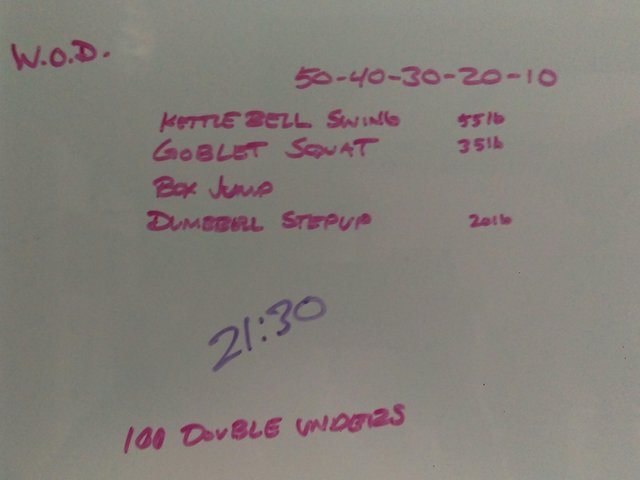 W.O.D.
50-40-30-20-10
KETTLEBELL SWING 55lb
GOBLET SQUAT 35lb
BOX JUMP
DUMBBELL STEPUP 20lb
21:30
100 DOUBLE UNDERS